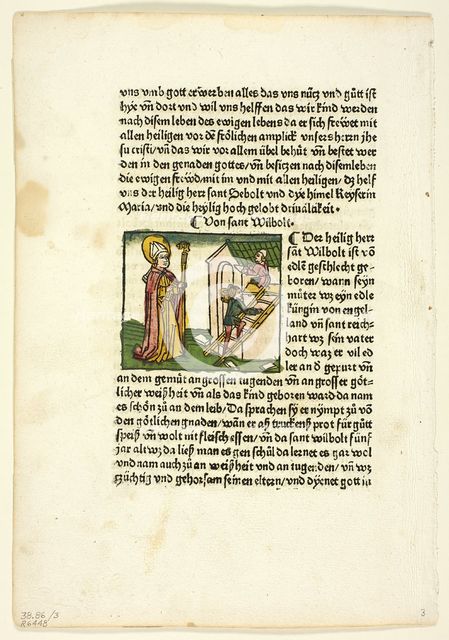 uns umb gott erwerben alles das uns nücz vnd gůtt ist
hye vñ dort vnd wil vns helffen das wir kind werden
nach disem leben des ewigen lebens da er sich frewet mit
allen heiligen vor dē frölichen amplick vnsers herrn jhe
su cristi/vñ das wir vor allem übel behůt vñ bestet wer
den in den genaden gottes/vñ besiczen nach disem leben
die ewigen frewd/mit im vnd mit allen heiligen/dz helf
vns der heilig herr sant Sebolt vnd dye himel Keyserin
Maria/vnd die heylig hoch gelobt driuäläkeit.
⸿ Von sant Wilbolt.
⸿ Der heilig herr
sāt Wilbolt ist vō
edlē geschlecht ge-
boren/wann seyn
můter wz eyn edle
küngin von engel-
land vñ sant reich-
hart wz sein vater
doch waz er vil ed
ler an d̄ gepurt vñ
an dem gemüt an grossen tugenden vñ an grosser göt-
licher weißheit vñ als das kind geboren ward da nam
es schön zů an dem leib/Da sprachen sy er nympt zů vō
den götlichen gnaden/wān er aß truckenß prot für gůtt
speiß vñ wolt nit fleisch essen/vñ da sant wilbolt fünf
jar alt wz da ließ man es gen schůl da lernet es gar wol
vnd nam auch zů an weißheit vnd an tugenden/vñ wz
züchtig vnd gehorsam seinen eltern/vnd dyenet gott in
38.86 /3
R6448
3